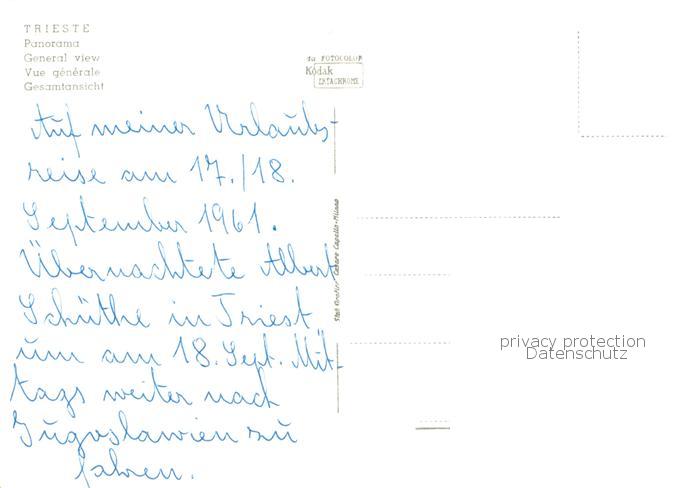 TRIESTE
Panorama
General view
Vue générale
Gesamtansicht
da FOTOCOLOR
Kodak
EKTACHROME
Auf meiner Urlaubs-
reise am 17./18.
September 1961.
Übernachtete Albert
Schüthe in Triest
um am 18. Sept. Mit-
tags weiter nach
Jugoslawien zu
fahren.
Cesare Capello-Milano
privacy protection
Datenschutz